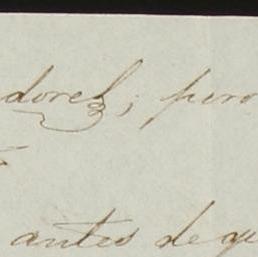 dores; pero
antes de qu